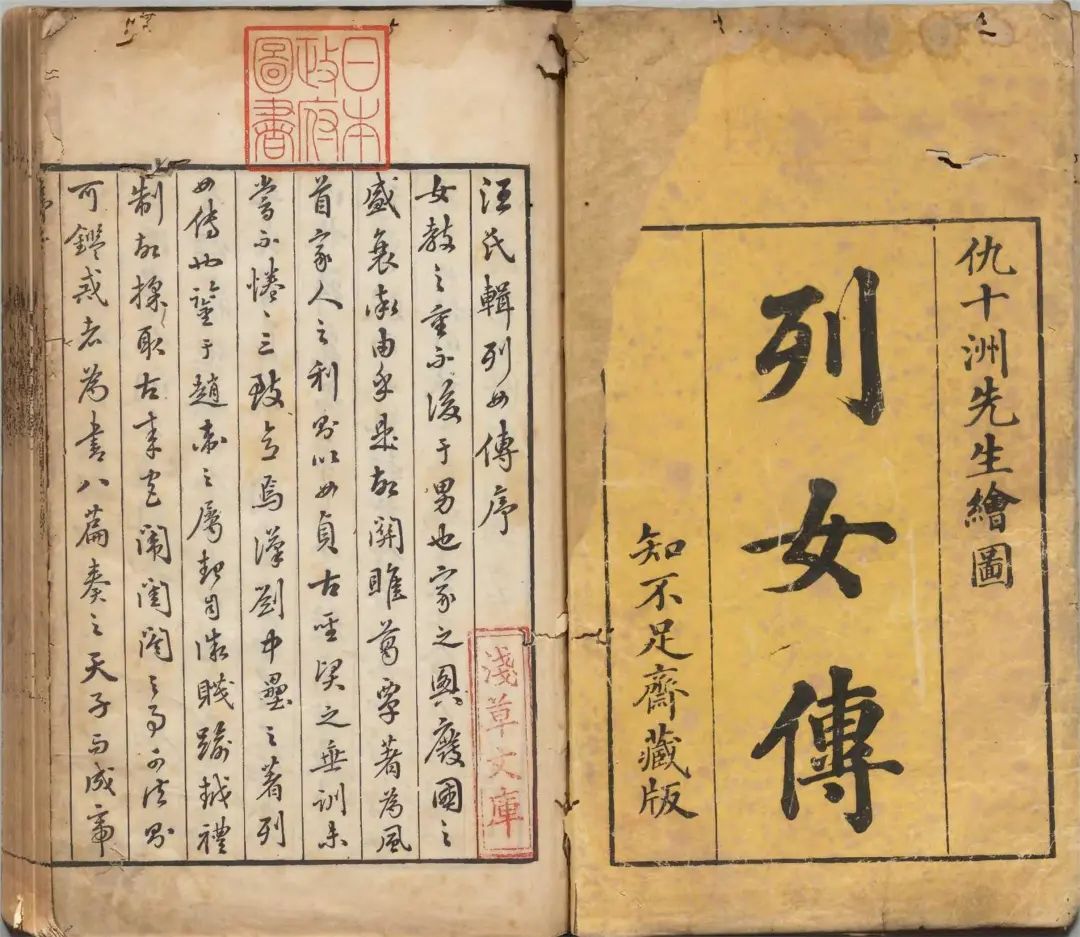 仇十洲先生繪圖
列女傳
知不足齋藏版
日本政府圖書
汪氏輯列女傳序
淺草文庫
女教之重不後于男也家之興廢國之
盛衰率由乎是故關雎葛覃著為風
首家人之利則以女貞古聖賢之垂訓未
嘗不惓〻三致意焉漢劉中壘之著列
女傳也鑒于趙衛之屬起自微賤踰越禮
制故採取古來宮闈閨閤之事可法則
可鑑戒者為書八篇奏之天子而成帝